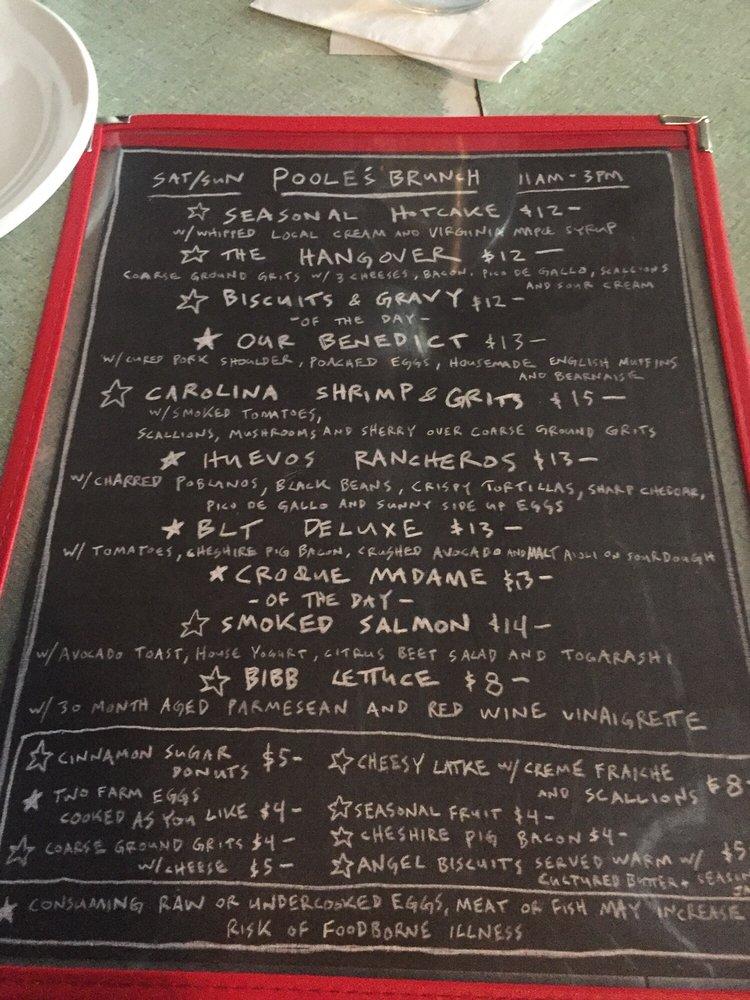 SAT/SUN POOLE'S BRUNCH 11AM - 3PM
☆ SEASONAL HOTCAKE $12 -
W/WHIPPED LOCAL CREAM AND VIRGINIA MAPLE SYRUP
☆ THE HANGOVER $12 -
COARSE GROUND GRITS W/ 3 CHEESES, BACON, PICO DE GALLO, SCALLIONS
AND SOUR CREAM
☆ BISCUITS & GRAVY $12 -
- OF THE DAY -
★ OUR BENEDICT $13 -
W/CURED PORK SHOULDER, POACHED EGGS, HOUSEMADE ENGLISH MUFFINS
AND BEARNAISE
☆ CAROLINA SHRIMP & GRITS $15 -
W/SMOKED TOMATOES,
SCALLIONS, MUSHROOMS AND SHERRY OVER COARSE GROUND GRITS
★ HUEVOS RANCHEROS $13 -
W/CHARRED POBLANOS, BLACK BEANS, CRISPY TORTILLAS, SHARP CHEDDAR,
PICO DE GALLO AND SUNNY SIDE UP EGGS
★ BLT DELUXE $13 -
W/ TOMATOES, CHESHIRE PIG BACON, CRUSHED AVOCADO AND MALT AIOLI ON SOURDOUGH
★ CROQUE MADAME $13 -
- OF THE DAY -
☆ SMOKED SALMON $14 -
W/AVOCADO TOAST, HOUSE YOGURT, CITRUS BEET SALAD AND TOGARASHI
☆ BIBB LETTUCE $8 -
W/ 30 MONTH AGED PARMESEAN AND RED WINE VINAIGRETTE
☆ CINNAMON SUGAR $5 -
DONUTS
★ TWO FARM EGGS
COOKED AS YOU LIKE $4 -
☆ COARSE GROUND GRITS $4 -
W/CHEESE $5 -
☆ CHEESY LATKE W/ CREME FRAICHE
AND SCALLIONS $8
☆ SEASONAL FRUIT $4 -
☆ CHESHIRE PIG BACON $4 -
☆ ANGEL BISCUITS SERVED WARM W/ $5
CULTURED BUTTER +
★ CONSUMING RAW OR UNDERCOOKED EGGS, MEAT OR FISH MAY INCREASE
RISK OF FOODBORNE ILLNESS